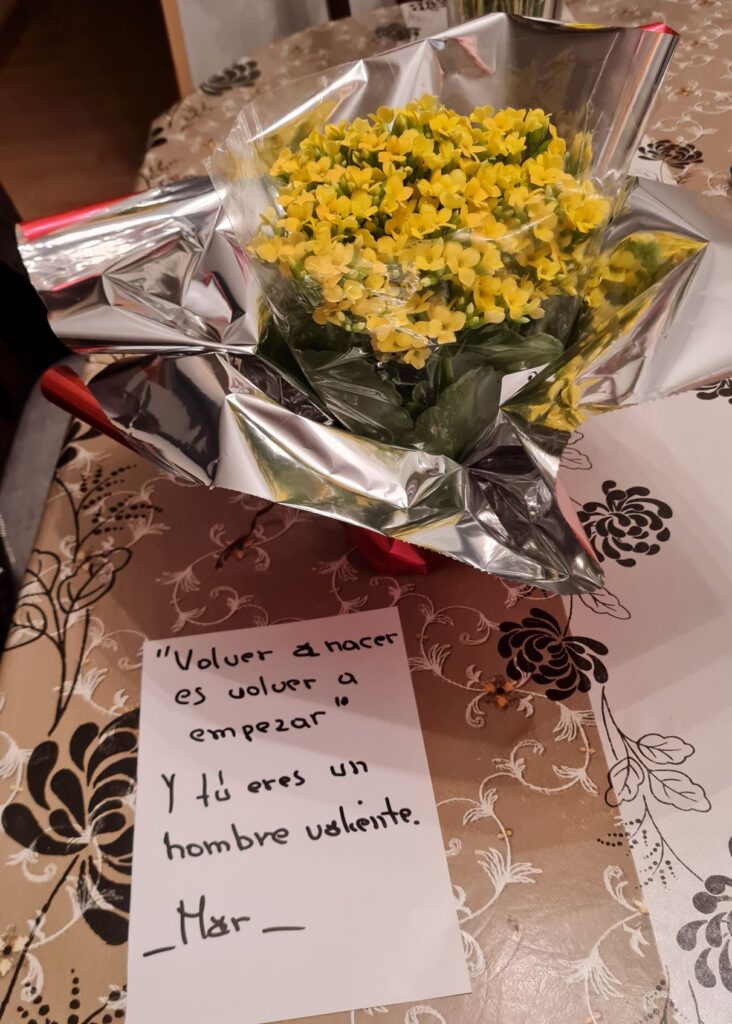 "Volver a nacer
es volver a
empezar"
Y tú eres un
hombre valiente.
_Mar_